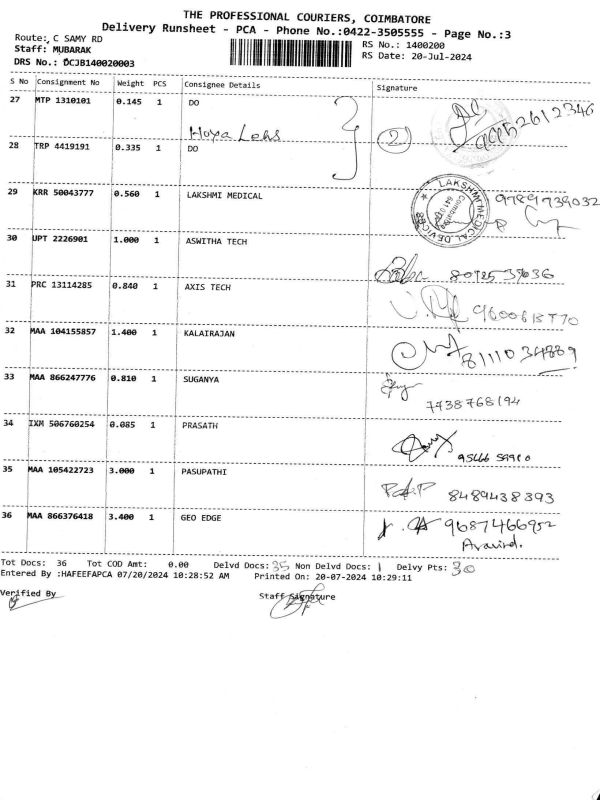 THE PROFESSIONAL COURIERS, COIMBATORE
Delivery Runsheet - PCA - Phone No.:0422-3505555 - Page No.:3
Route: C SAMY RD
RS No.: 1400200
Staff: MUBARAK
RS Date: 20-Jul-2024
DRS No.: DCJB140020003
S No Consignment No Weight PCS Consignee Details Signature
27 MTP 1310101 0.145 1 DO
Hoya Lens
2
9952612346
28 TRP 4419191 0.335 1 DO
29 KRR 50043777 0.560 1 LAKSHMI MEDICAL
LAKSHMI MEDICAL DEVICES
Coimbatore
9789739032
30 UPT 2226901 1.000 1 ASWITHA TECH
31 PRC 13114285 0.840 1 AXIS TECH
32 MAA 104155857 1.400 1 KALAIRAJAN
33 MAA 866247776 0.810 1 SUGANYA
34 IXM 506760254 0.085 1 PRASATH
35 MAA 105422723 3.000 1 PASUPATHI
8489438393
36 MAA 866376418 3.400 1 GEO EDGE
9687466952
Aravind.
Tot Docs: 36 Tot COD Amt: 0.00 Delvd Docs: 35 Non Delvd Docs: 1 Delvy Pts: 30
Entered By :HAFEEFAPCA 07/20/2024 10:28:52 AM Printed On: 20-07-2024 10:29:11
Verified By
Staff Signature